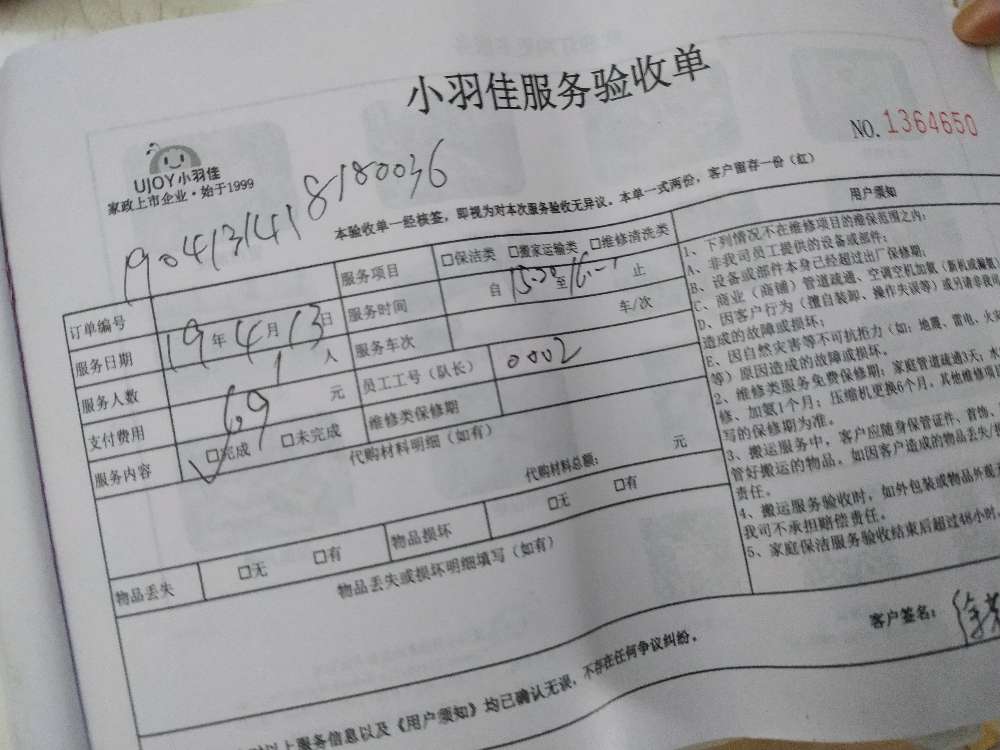 小羽佳服务验收单
NO. 1364650
UJOY小羽佳
家政上市企业·始于1999
190413141 8180036
本验收单一经核签，即视为对本次服务验收无异议。本单一式两份，客户留存一份（红）
订单编号
服务项目 □保洁类 □搬家运输类 □维修清洗类
服务日期 19年4月13日
服务时间 自 15:30 至 16: 止
服务人数 1 人
服务车次 车/次
支付费用 69 元
员工工号（队长） 0002
服务内容 □完成 □未完成
维修类保修期
代购材料明细（如有）
代购材料总额： 元
物品丢失 □无 □有
物品损坏 □无 □有
物品丢失或损坏明细填写（如有）
用户须知
1、下列情况不在维修项目的维保范围之内：
A、非我司员工提供的设备或部件；
B、设备或部件本身已经超过出厂保修期，
C、商业（商铺）管道疏通、空调空机加氨（新机或漏氨）
D、因客户行为（擅自装卸、操作失误等）或另请非我司
造成的故障或损坏；
E、因自然灾害等不可抗拒力（如：地震、雷电、火灾
等）原因造成的故障或损坏。
2、维修类服务免费保修期：家庭管道疏通3天，水
修、加氨1个月；压缩机更换6个月，其他维修项目
写的保修期为准。
3、搬运服务中，客户应随身保管证件、首饰、
管好搬运的物品，如因客户造成的物品丢失/损
责任。
4、搬运服务验收时，如外包装或物品外观
我司不承担赔偿责任。
5、家庭保洁服务验收结束后超过48小时，
客户签名：
以上服务信息以及《用户须知》均已确认无误，不存在任何争议纠纷。